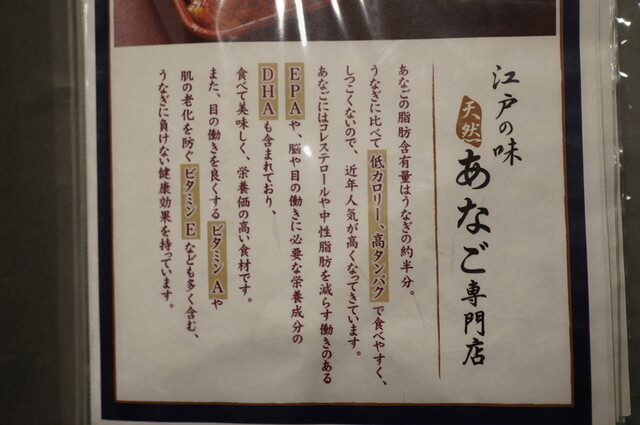 江戸の味
天然あなご専門店
あなごの脂肪含有量はうなぎの約半分。
うなぎに比べて低カロリー、高タンパクで食べやすく、
しつこくないので、近年人気が高くなってきています。
あなごにはコレステロールや中性脂肪を減らす働きのある
EPAや、脳や目の働きに必要な栄養成分の
DHAも含まれており、
食べて美味しく、栄養価の高い食材です。
また、目の働きを良くするビタミンAや
肌の老化を防ぐビタミンEなども多く含む、
うなぎに負けない健康効果を持っています。